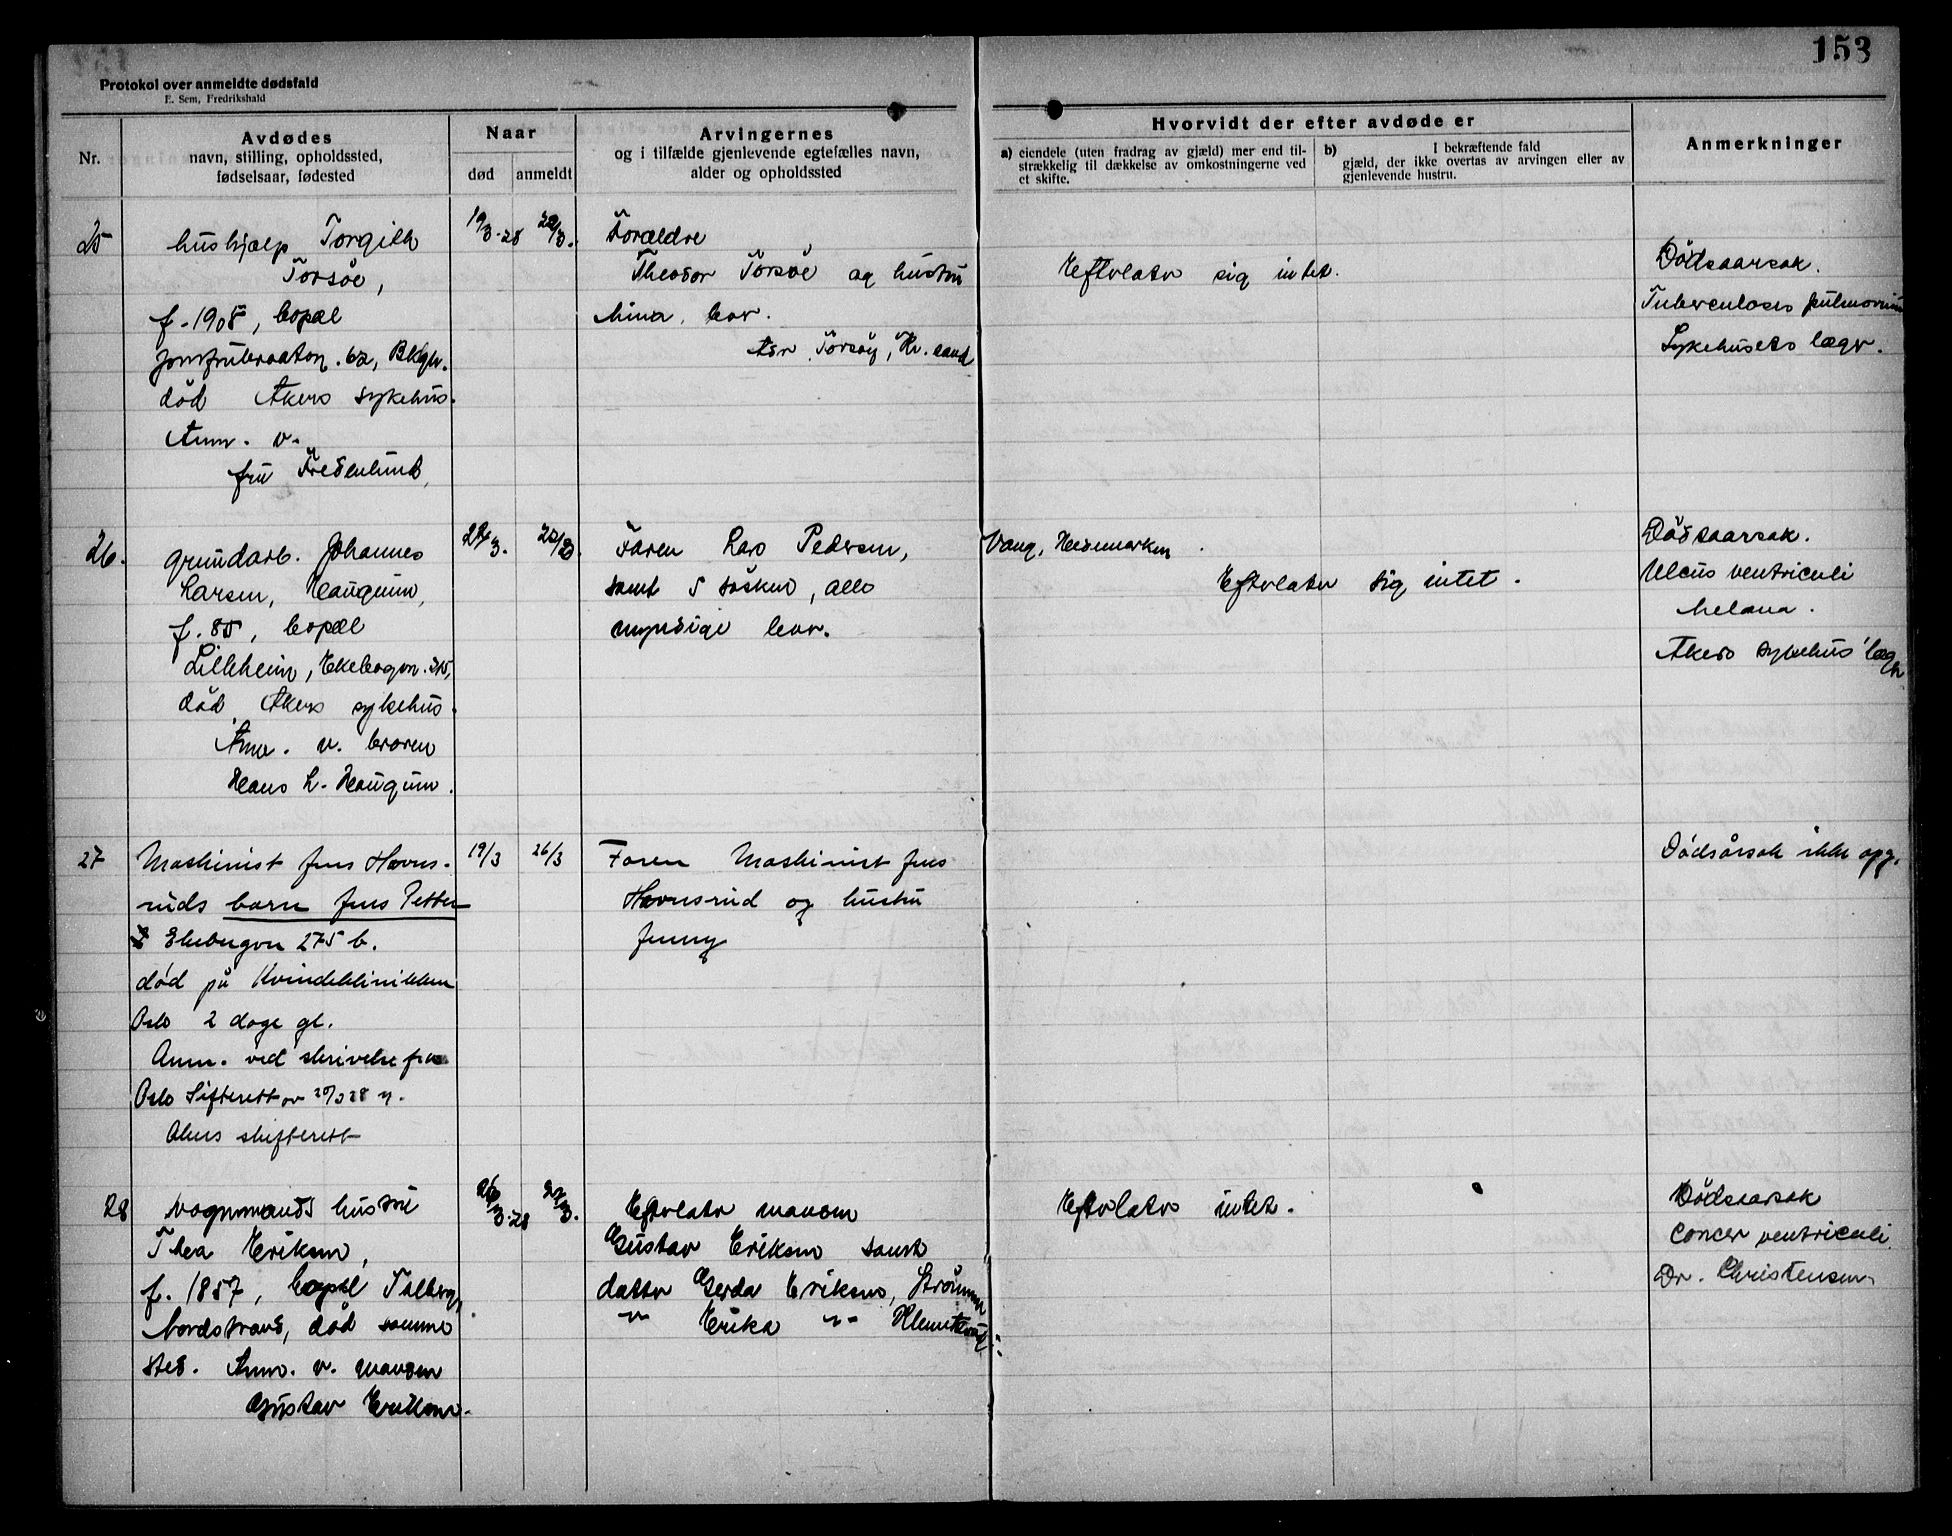 153
Protokol over anmeldte dødsfald
E. Sem, Fredrikshald
Nr.
Avdødes
navn, stilling, opholdssted,
fødselsaar, fødested
Naar
død
anmeldt
Arvingernes
og i tilfælde gjenlevende egtefælles navn,
alder og opholdssted
Hvorvidt der efter avdøde er
a) eiendele (uten fradrag av gjæld) mer end til-
strækkelig til dækkelse av omkostningerne ved
et skifte.
b) I bekræftende fald
gjæld, der ikke overtas av arvingen eller av
gjenlevende hustru.
Anmerkninger
25
hushjælp Torgith
Torsöe,
f. 1908, bopæl
62, Bkgr.
död Akers sykehus.
Anm. v.
fru Fredenlund,
19/3.28
22/3.
Forældre
Theodor Torsöe og hustru
Mina, bor.
Torsöy, Kr.sand
Efterlater sig intet.
Dödsaarsak.
Tuberculosis pulmonum
Sykehusets læge.
26.
grundarb. Johannes
Larsen, Haugum,
f. 85, bopæl
Lilleheim, Ekebergvn. 315,
död Akers sykehus.
Anm. v. broren
Hans L. Haugum.
22/3.
Faren Lars Pedersen, Vang, Hedemarken
samt 5 søsken, alle
myndige bor.
Efterlater sig intet.
Dödsaarsak.
Ulcus ventriculi
Melæna.
Akers sykehus' læge
27
Maskinist Jens Havns-
ruds barn Jens Petter
Ekebergvn 275 b.
død på Kvindeklinikken
Oslo 2 dage gl.
Anm. ved skrivelse fra
Oslo Sifterett av 20/3 28 n.
Akers skifterett
19/3
26/3
Faren Maskinist Jens
Havnsrud og hustru
Jenny
Dødsårsak ikke opg.
28
Vognmands hustru
Thea Eriksen,
f. 1857, bopæl Solberg,
Nordstrand, död samme
sted. Anm. v. manden
Gustav Eriksen.
26/3.28
27/3.
Efterlater manden
Gustav Eriksen samt
datter Gerda Eriksen, Strömmen
" Erika "- Klemetsrud.
Efterlater intet.
Dödsaarsak
Cancer ventriculi
Dr. Christensen